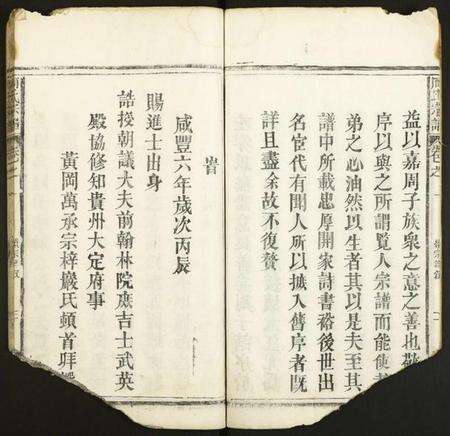 益以嘉周子族眾之意之善也敬
序以與之所謂覽人宗譜而能使孝
弟之心油然以生者其以是夫至其
譜中所載忠厚開家詩書裕後世出
名宦代有聞人所以摭入舊序者既
詳且盡余故不復贅
旹
咸豐六年歲次丙辰
賜進士出身
誥授朝議大夫前翰林院庶吉士武英
殿協修知貴州大定府事
黃岡萬承宗梓巖氏頓首拜